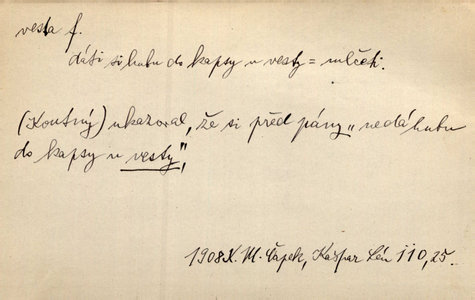 vesta f.
dáti si hubu do kapsy u vesty = mlčeti.
(Koutný) ukazoval, že si před pány „nedá hubu
do kapsy u vesty",
1908 X. M. Čapek, Kašpar Lén 110, 25.